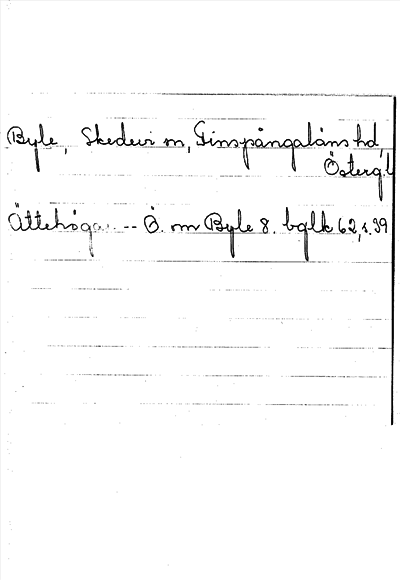 Byle, Skedevi sn, Finspångaläns hd,
Östergl
Ättehögar -- Ö. om Byle 8. bglk 62, s. 39